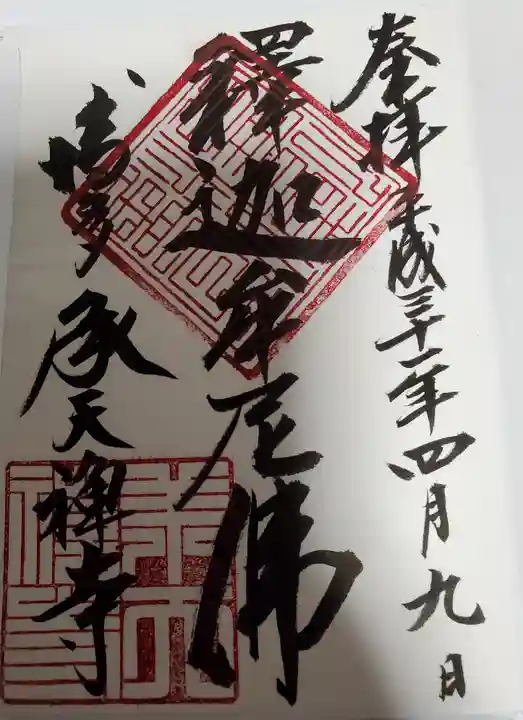 奉拝 平成三十一年四月九日
釋迦牟尼佛
博多承天禅寺